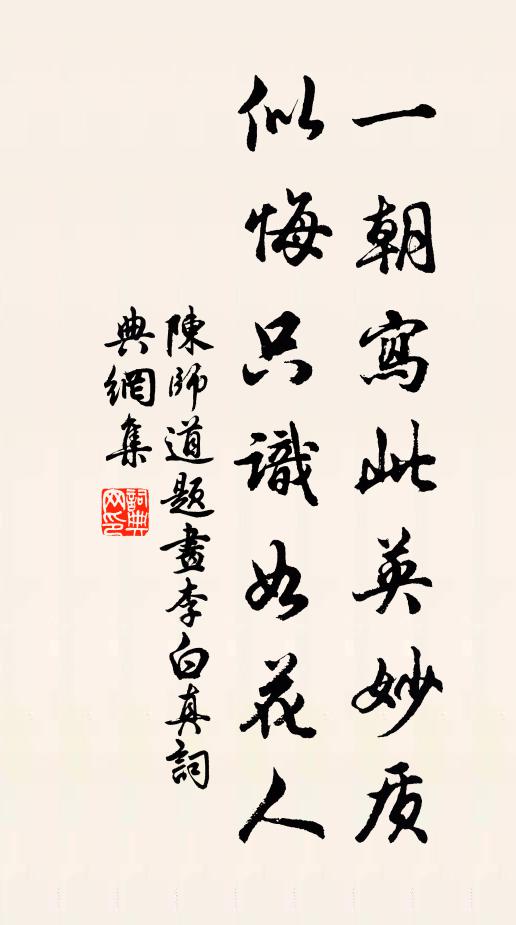 一朝寫此英妙质
似悔只識如花人
陳師道題畫李白真詞
典網集
詞典網印